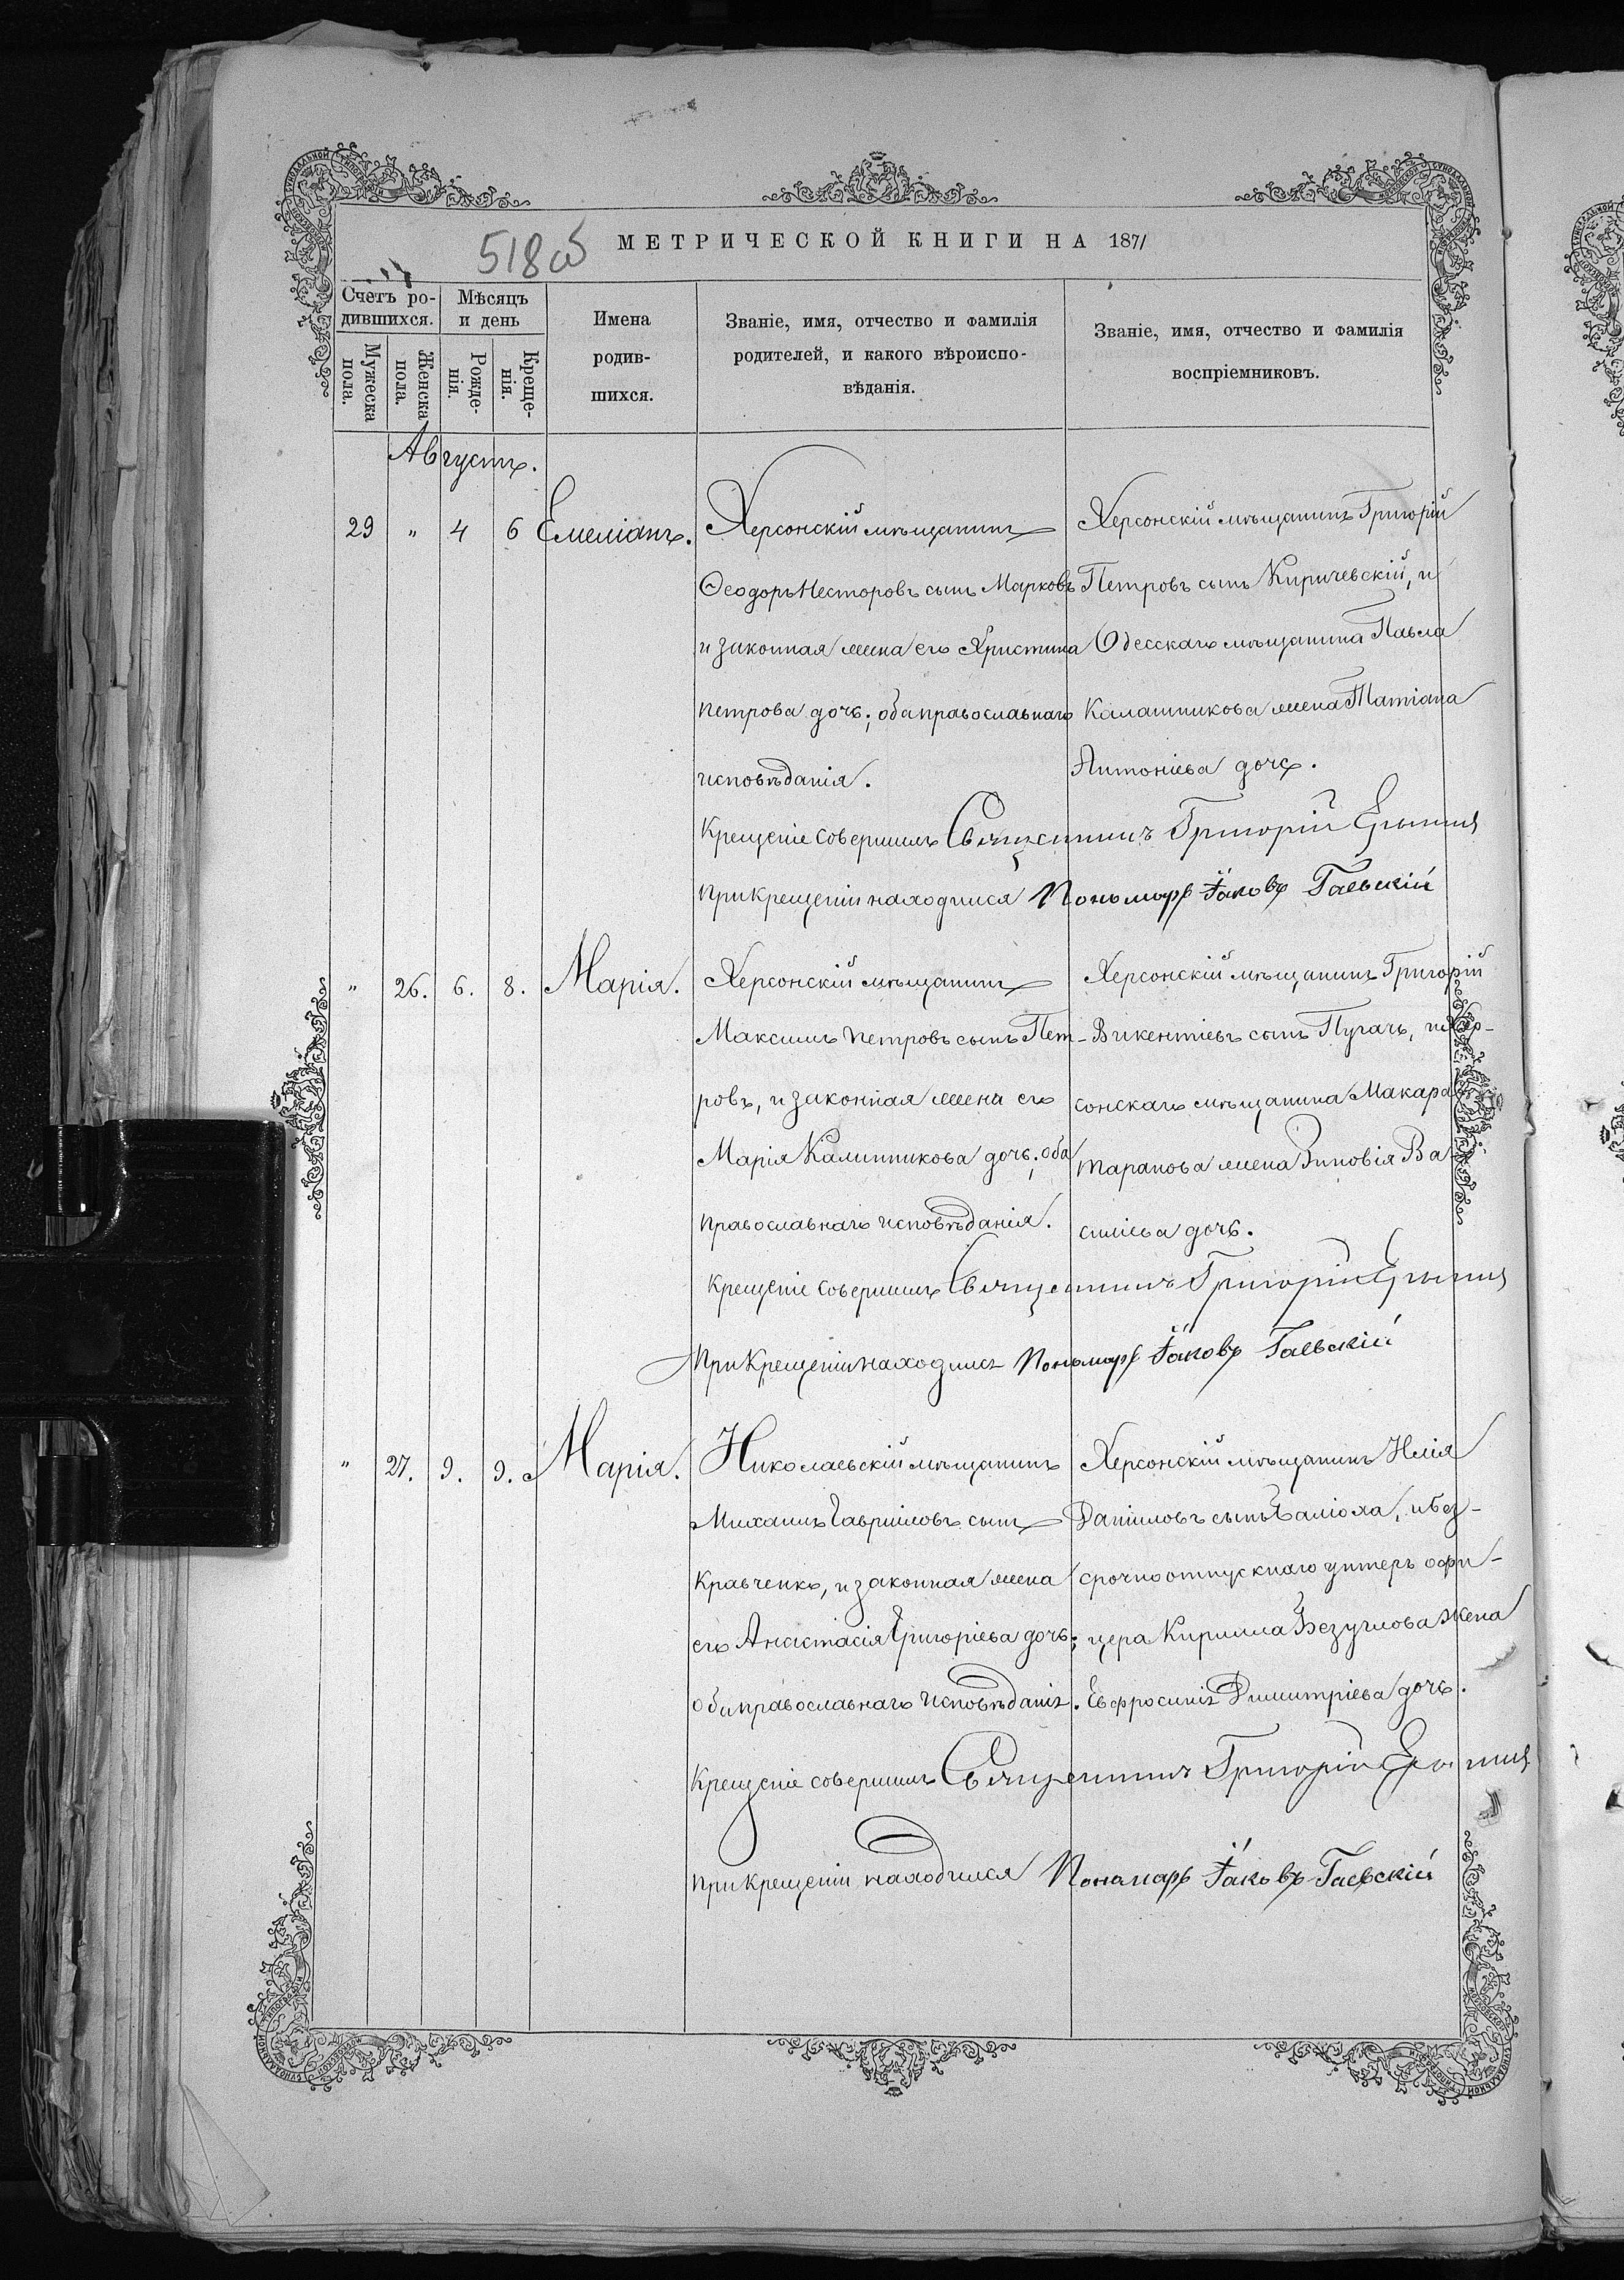 518 об
МЕТРИЧЕСКОЙ КНИГИ НА 1871
Счетъ ро-
дившихся.
Мѣсяцъ
и день
Мужеска
пола.
Женска
пола.
Рожде-
нія.
Креще-
нія.
Имена
родив-
шихся.
Званіе, имя, отчество и фамилія
родителей, и какого вѣроиспо-
вѣданія.
Званіе, имя, отчество и фамилія
воспріемниковъ.
Августъ.
29 " 4 6 Емеліанъ.
Херсонскій мѣщанинъ
Ѳеодоръ Несторовъ сынъ Марковъ
и законная жена его Христина
Петрова дочь; оба православнаго
исповѣданія.
Херсонскій мѣщанинъ Григорій
Петровъ сынъ Киричевскій, и
Одесскаго мѣщанина Павла
Калашникова жена Татіана
Антоніева дочь.
Крещеніе совершилъ Священникъ Григорій
При крещеніи находился Пономарь Іаковъ Гаевскій
" 26. 6. 8. Марія.
Херсонскій мѣщанинъ
Максимъ Петровъ сынъ Пет-
ровъ, и законная жена его
Марія Калинникова дочь; оба
православнаго исповѣданія.
Херсонскій мѣщанинъ Григорій
Викентіевъ сынъ Пугачъ, и Хер-
сонскаго мѣщанина Макара
Таранова жена Зиновія Ва-
силіева дочь.
Крещеніе совершилъ Священникъ Григорій
При крещеніи находился Пономарь Іаковъ Гаевскій
" 27. 9. 9. Марія.
Николаевскій мѣщанинъ
Михаилъ Гавріиловъ сынъ
Кравченко, и законная жена
его Анастасія Григоріева дочь;
оба православнаго исповѣданія.
Херсонскій мѣщанинъ Илія
Даніиловъ сынъ и без-
срочноотпускнаго унтеръ офи-
цера Кирилла Безуглова жена
Евфросинія Димитріева дочь.
Крещеніе совершилъ Священникъ Григорій
При крещеніи находился Пономарь Іаковъ Гаевскій